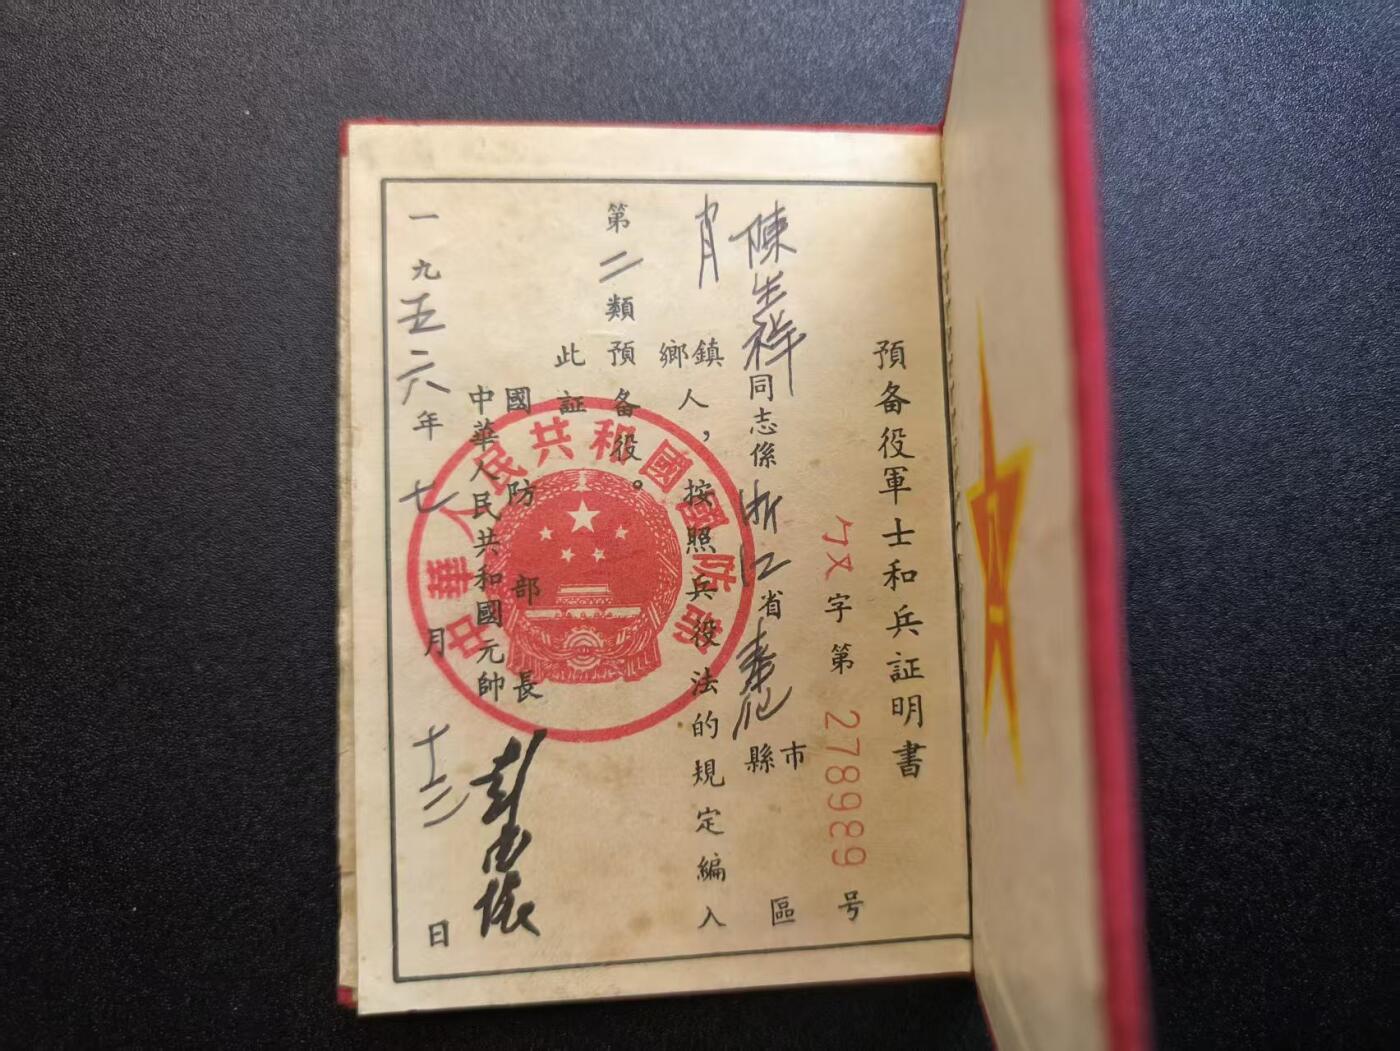 預备役軍士和兵証明書
ㄅㄡ字第278989号
陳生祥同志係浙江省奉化市縣區
鎮鄉人，按照兵役法的規定編入
第二類預备役。
此証
國防部長
中華人民共和國元帥
彭德懷
一九五六年七月十二日
中華人民共和國國防部
八一